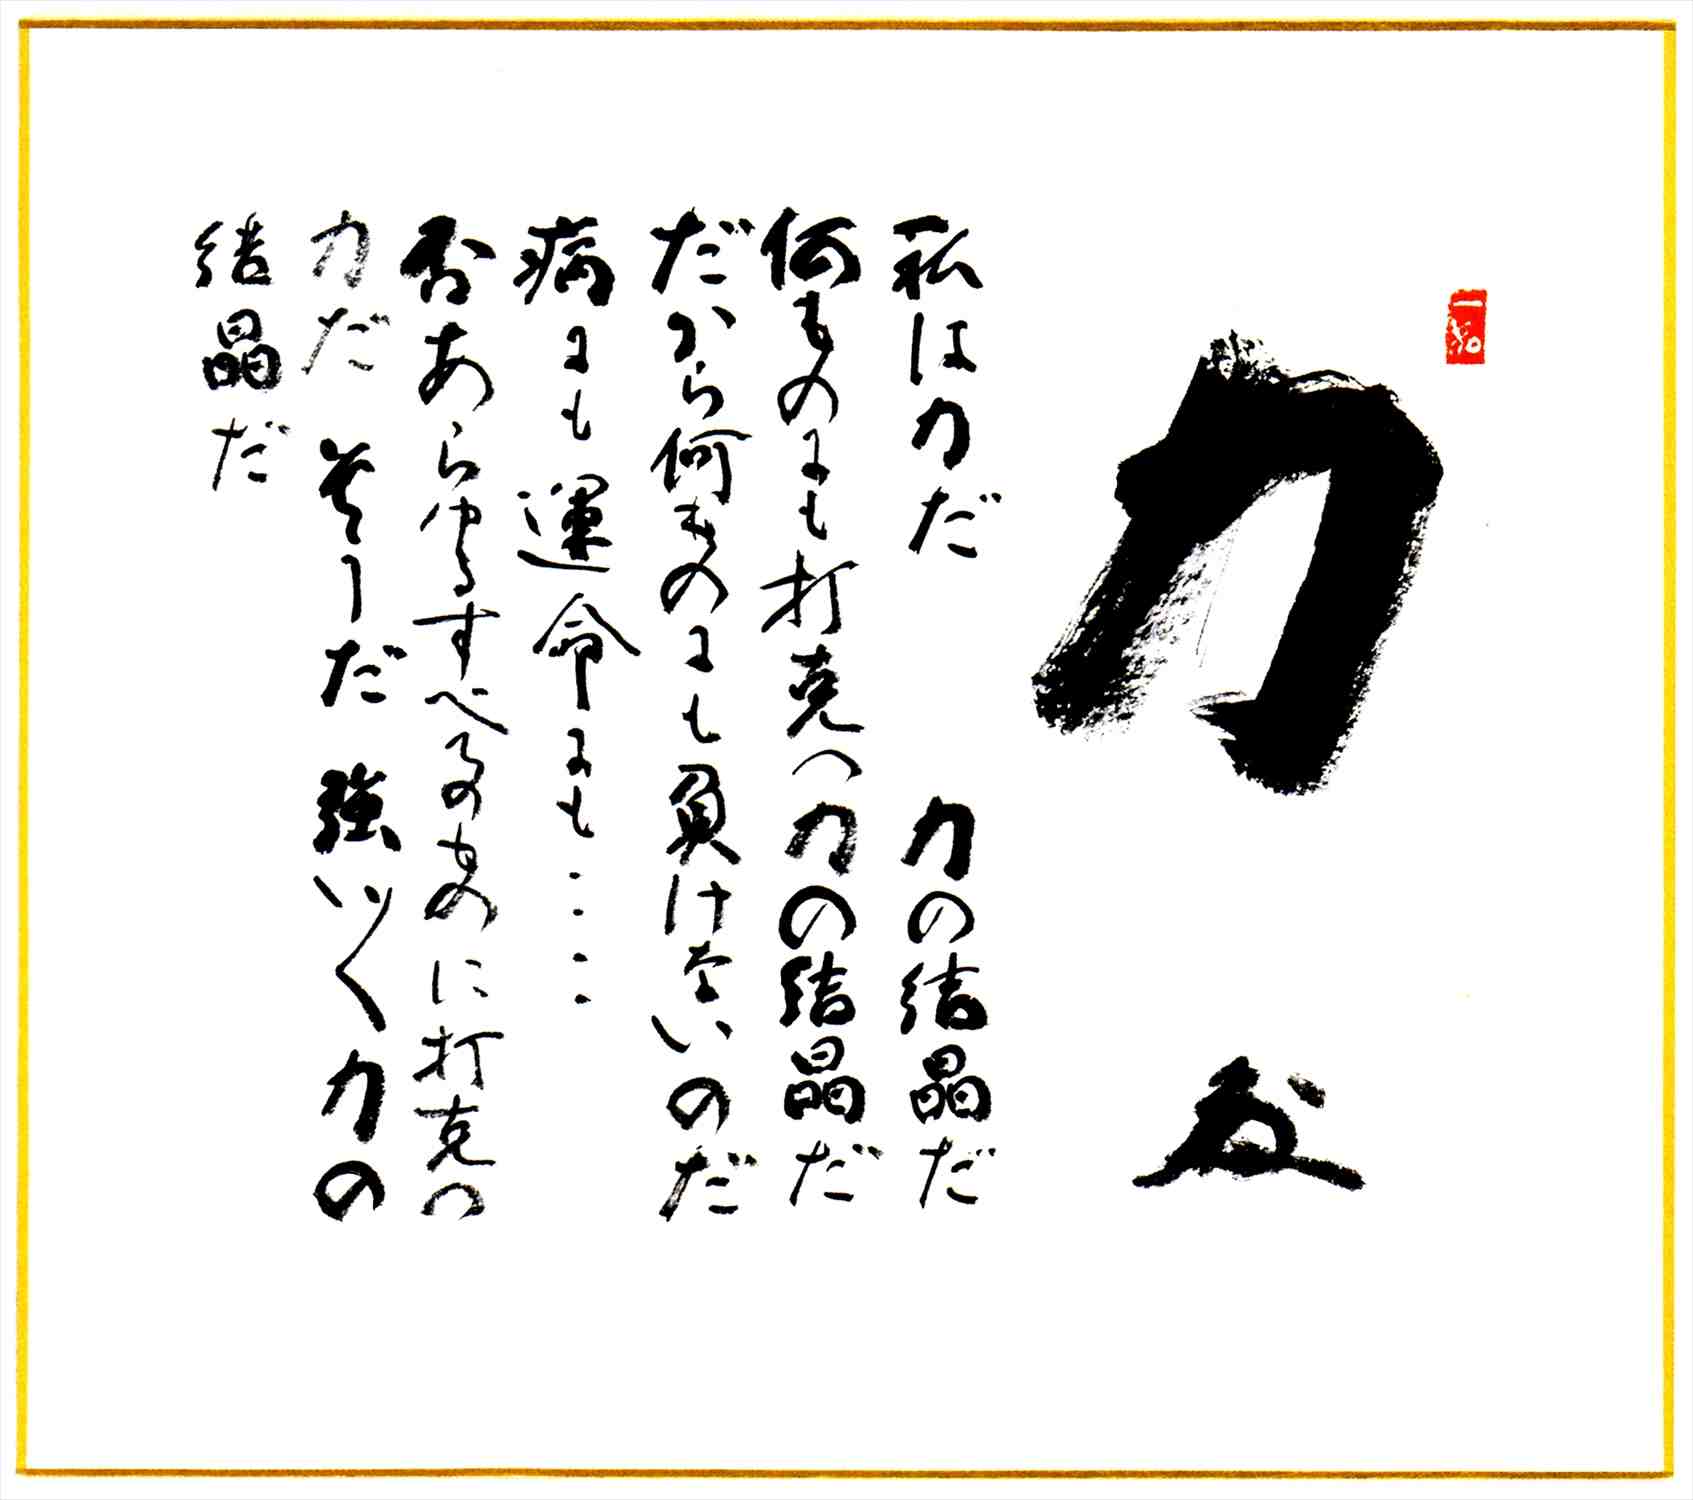 力
私は力だ 力の結晶だ
何ものにも打克つ力の結晶だ
だから何ものにも負けないのだ
病にも運命にも…………
否あらゆるすべてのものに打克つ
力だ そうだ 強い〱力の
結晶だ